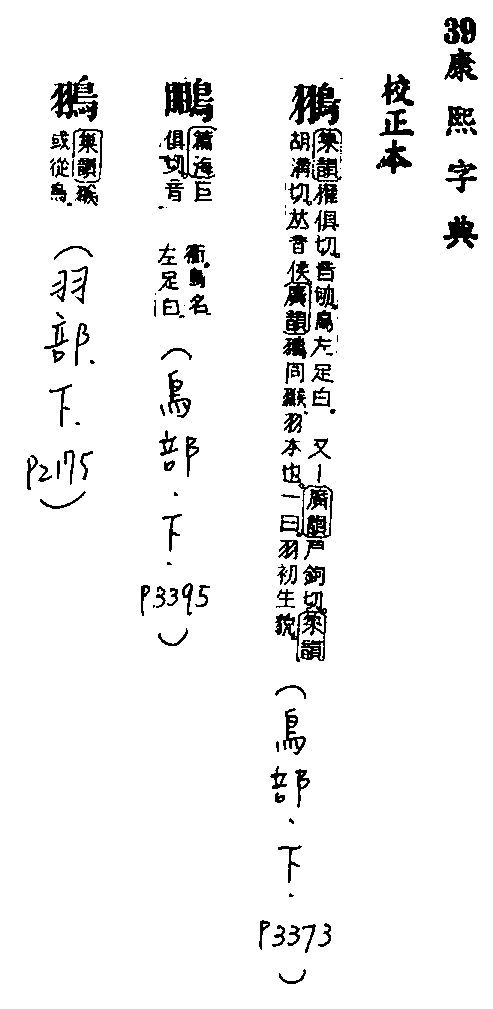 39康熙字典
校正本
集韻權俱切音劬鳥左足白。又｜廣韻戶鉤切。集韻
胡溝切。𠀤音侯廣韻同翭羽本也。一曰羽初生貌。
(鳥部.下.P3373)
篇海巨
俱切。音
衢。鳥名
左足白。
(鳥部.下.P3395)
集韻翭
或從鳥。
(羽部.下.P2175)